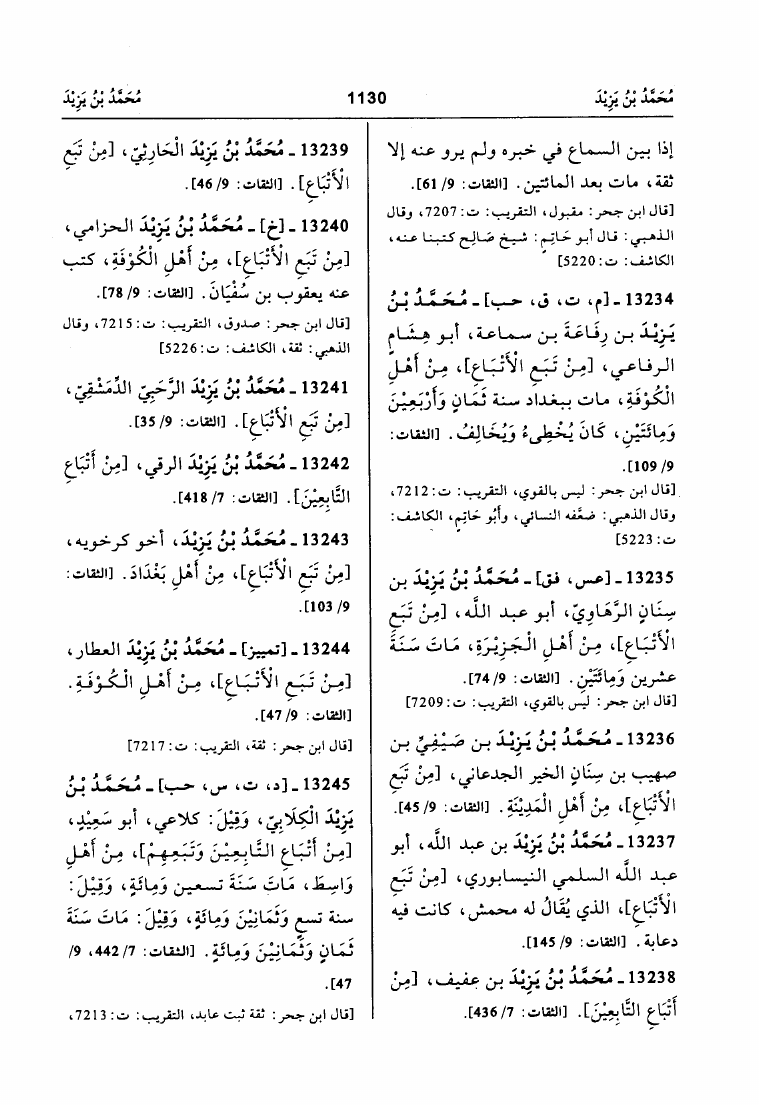 مُحَمَّدُ بْنُ يَزِيْدَ
1130
مُحَمَّدُ بْنُ يَزِيْدَ
إذا بين السماع في خبره ولم يرو عنه إلا
ثقة، مات بعد المائتين. [الثقات: 9/ 61].
[قال ابن حجر: مقبول، التقريب: ت:7207، وقال
الذهبي: قال أبو حَاتِم: شيخ صَالِح كتبنا عنه،
الكاشف: ت:5220]
13234 ـ [م، ت، ق، حب] ـ مُحَمَّدُ بْنُ
يَزِيْدَ بن رِفَاعَةَ بن سماعة، أبو هِشَام
الرفاعي، [مِنْ تَبَعِ الْأَتْبَاعِ]، مِنْ أَهْلِ
الْكُوْفَةِ، مات ببغداد سنة ثَمَانٍ وَأَرْبَعِيْنَ
وَمِائَتَيْنِ، كَانَ يُخْطِىءُ وَيُخَالِفُ. [الثقات:
9/ 109].
[قال ابن حجر: ليس بالقوي، التقريب: ت:7212،
وقال الذهبي: ضعَّفه النسائي، وأبُو حَاتِم، الكاشف:
ت:5223]
13235 ـ [عس، فق] ـ مُحَمَّدُ بْنُ يَزِيْدَ بن
سِنَانٍ الرَّهَاوِيّ، أبو عبد اللَّه، [مِنْ تَبَعِ
الْأَتْبَاعِ]، مِنْ أَهْلِ الْجَزِيْرَةِ، مَاتَ سَنَةَ
عشرين وَمِائَتَيْنِ. [الثقات: 9/ 74].
[قال ابن حجر: ليس بالقوي، التقريب: ت:7209]
13236 ـ مُحَمَّدُ بْنُ يَزِيْدَ بن صَيْفِيِّ بن
صهيب بن سِنَانٍ الخير الجدعاني، [مِنْ تَبَعِ
الْأَتْبَاعِ]، مِنْ أَهْلِ الْمَدِيْنَةِ. [الثقات: 9/ 45].
13237 ـ مُحَمَّدُ بْنُ يَزِيْدَ بن عبد اللَّه، أبو
عبد اللَّه السلمي النيسابوري، [مِنْ تَبَعِ
الْأَتْبَاعِ]، الذي يُقَالُ له محمش، كانت فيه
دعابة. [الثقات: 9/ 145].
13238 ـ مُحَمَّدُ بْنُ يَزِيْدَ بن عفيف، [مِنْ
أَتْبَاعِ التَّابِعِيْنَ]. [الثقات: 7/ 436].
13239 ـ مُحَمَّدُ بْنُ يَزِيْدَ الْحَارِثِيّ، [مِنْ تَبَعِ
الْأَتْبَاعِ]. [الثقات: 9/ 46].
13240 ـ [خ] ـ مُحَمَّدُ بْنُ يَزِيْدَ الحزامي،
[مِنْ تَبَعِ الْأَتْبَاعِ]، مِنْ أَهْلِ الْكُوْفَةِ، كتب
عنه يعقوب بن سُفْيَانَ. [الثقات: 9/ 78].
[قال ابن حجر: صدوق، التقريب: ت:7215، وقال
الذهبي: ثقة، الكاشف: ت:5226]
13241 ـ مُحَمَّدُ بْنُ يَزِيْدَ الرَّحَبِيّ الدِّمَشْقِيّ،
[مِنْ تَبَعِ الْأَتْبَاعِ]. [الثقات: 9/ 35].
13242 ـ مُحَمَّدُ بْنُ يَزِيْدَ الرقي، [مِنْ أَتْبَاعِ
التَّابِعِيْنَ]. [الثقات: 7/ 418].
13243 ـ مُحَمَّدُ بْنُ يَزِيْدَ، أخو كرخويه،
[مِنْ تَبَعِ الْأَتْبَاعِ]، مِنْ أَهْلِ بَغْدَادَ. [الثقات:
9/ 103].
13244 ـ [تمييز] ـ مُحَمَّدُ بْنُ يَزِيْدَ العطار،
[مِنْ تَبَعِ الْأَتْبَاعِ]، مِنْ أَهْلِ الْكُوْفَةِ.
[الثقات: 9/ 47].
[قال ابن حجر: ثقة، التقريب: ت:7217]
13245 ـ [د، ت، س، حب] ـ مُحَمَّدُ بْنُ
يَزِيْدَ الْكِلَابِيّ، وَقِيْلَ: كلاعي، أبو سَعِيْدٍ،
[مِنْ أَتْبَاعِ التَّابِعِيْنَ وَتَبَعِهِمْ]، مِنْ أَهْلِ
وَاسِطَ، مَاتَ سَنَةَ تسعين وَمِائَةٍ، وَقِيْلَ:
سنة تسع وَثَمَانِيْنَ وَمِائَةٍ، وَقِيْلَ: مَاتَ سَنَةَ
ثَمَانٍ وَثَمَانِيْنَ وَمِائَةٍ. [الثقات: 7/ 442، 9/
47].
[قال ابن حجر: ثقة ثبت عابد، التقريب: ت:7213،